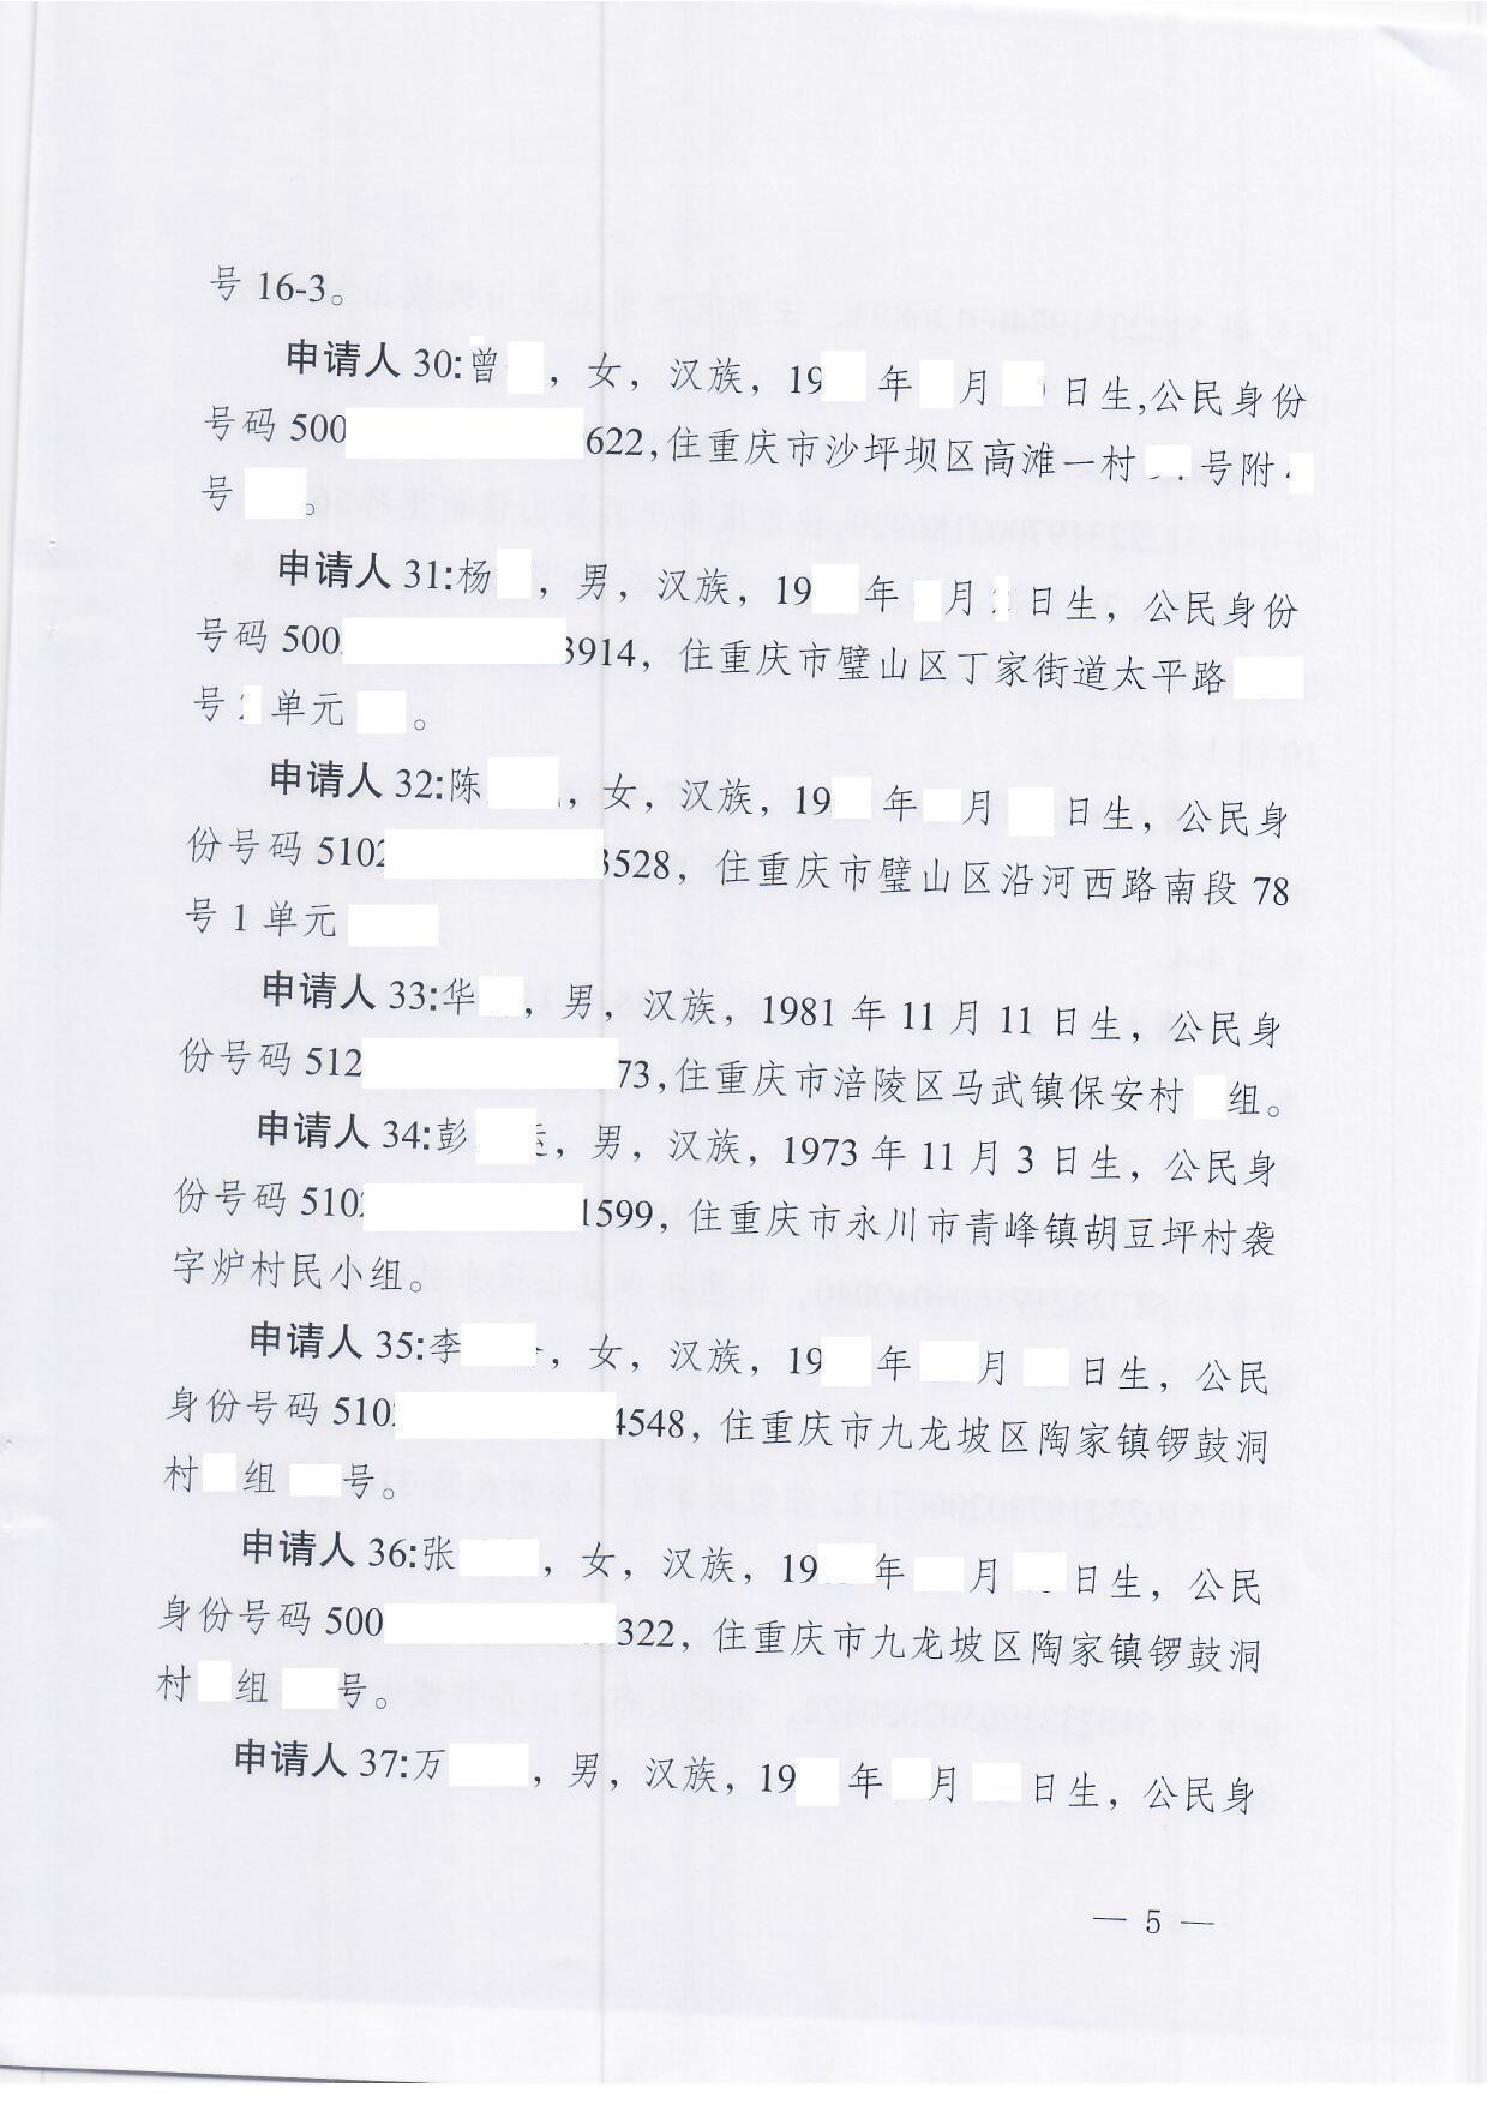 号 16-3。
申请人 30:曾 ，女，汉族，19 年 月 日生,公民身份
号码 500 622,住重庆市沙坪坝区高滩一村 号附
号 。
申请人 31:杨 ，男，汉族，19 年 月 日生，公民身份
号码 500 3914，住重庆市璧山区丁家街道太平路
号 单元 。
申请人 32:陈 ，女，汉族，19 年 月 日生，公民身
份号码 5102 3528，住重庆市璧山区沿河西路南段 78
号 1 单元
申请人 33:华 ，男，汉族，1981 年 11 月 11 日生，公民身
份号码 512 73,住重庆市涪陵区马武镇保安村 组。
申请人 34:彭 ，男，汉族，1973 年 11 月 3 日生，公民身
份号码 510 1599，住重庆市永川市青峰镇胡豆坪村袭
字炉村民小组。
申请人 35:李 ，女，汉族，19 年 月 日生，公民
身份号码 510 4548，住重庆市九龙坡区陶家镇锣鼓洞
村 组 号。
申请人 36:张 ，女，汉族，19 年 月 日生，公民
身份号码 500 322，住重庆市九龙坡区陶家镇锣鼓洞
村 组 号。
申请人 37:万 ，男，汉族，19 年 月 日生，公民身
— 5 —